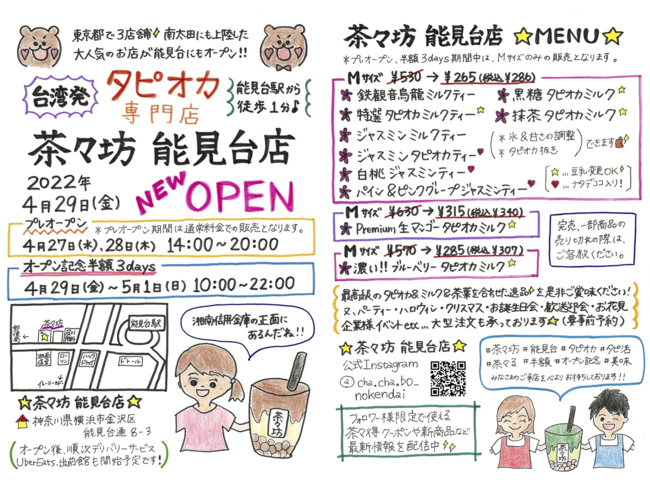 東京都で3店舗 南太田にも上陸した
大人気のお店が能見台にもオープン!!
台湾発
タピオカ
専門店
能見台駅から
徒歩1分♪
茶々坊 能見台店
2022年
4月29日(金)
NEW OPEN
プレオープン ※プレオープン期間は通常料金での販売となります。
4月27日(水)、28日(木) 14:00～20:00
オープン記念半額3days
4月29日(金)～5月1日(日) 10:00～22:00
茶々坊
能見台駅
湘南信金
ローソン
ドトール
湘南信用金庫の正面に
あるんだね!!
茶々坊
☆茶々坊 能見台店☆
神奈川県横浜市金沢区
能見台通8-3
オープン後、順次デリバリーサービス
UberEats、出前館も開始予定です!
茶々坊 能見台店 ☆MENU☆
※プレオープン、半額3days期間中は、Mサイズのみの販売となります。
Mサイズ ¥530→¥265(税込¥286)
鉄観音烏龍ミルクティー
特選タピオカミルクティー☆
ジャスミンミルクティー
ジャスミンタピオカティー♥
白桃ジャスミンティー♥
パイン&ピンクグレープジャスミンティー♥
黒糖タピオカミルク☆
抹茶タピオカミルク☆
※氷&甘さの調整
※タピオカ抜き
できます
☆…豆乳変更OK
♥…ナタデココ入り!
Mサイズ ¥630→¥315(税込¥340)
Premium生マンゴータピオカミルク☆
Mサイズ ¥570→¥285(税込¥307)
濃い!!ブルーベリータピオカミルク☆
完売、一部商品の
売り切れの際は、
ご容赦ください。
最高級のタピオカ&ミルク&茶葉を合わせた逸品を是非ご賞味ください!
又、パーティー・ハロウィン・クリスマス・お誕生日会・歓送迎会・お花見
企業様イベントetc…大型注文も承っております☆(要事前予約)
☆茶々坊 能見台店☆
公式Instagram
@cha.cha.bo_
nokendai
フォロワー様限定で使える
茶々得クーポンや新商品など
最新情報を配信中
#茶々坊 #能見台 #タピオカ #タピ活
#茶々る #半額 #オープン記念 #美味
みなさまのご来店を心よりお待ちしております!!
茶々坊